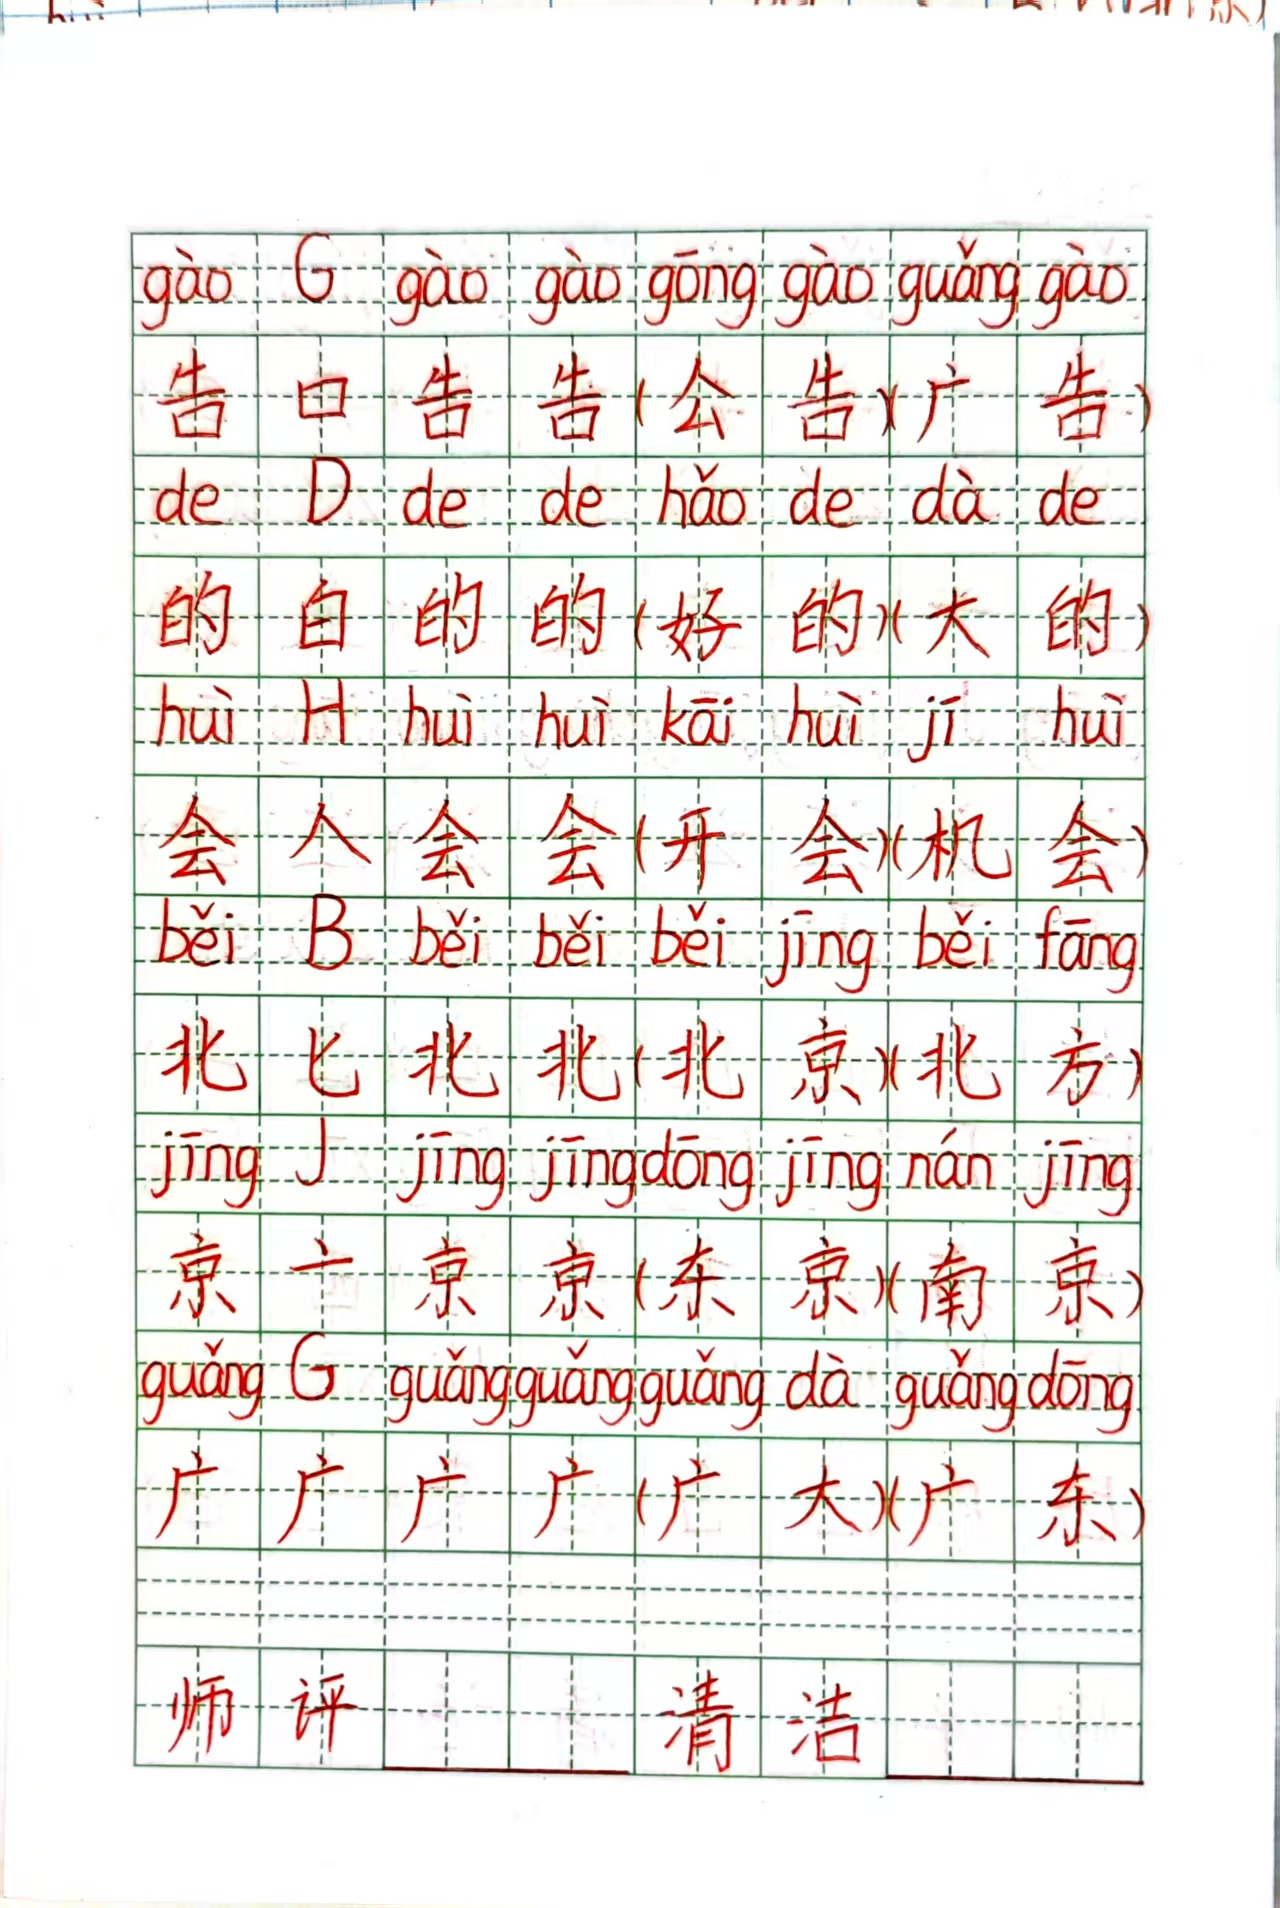 gào G gào gào gōng gào guǎng gào
告 口 告 告 (公 告)(广 告)
de D de de hǎo de dà de
的 白 的 的 (好 的)(大 的)
huì H huì huì kāi huì jī huì
会 人 会 会 (开 会)(机 会)
běi B běi běi běi jīng běi fāng
北 匕 北 北 (北 京)(北 方)
jīng J jīng jīng dōng jīng nán jīng
京 亠 京 京 (东 京)(南 京)
guǎng G guǎng guǎng guǎng dà guǎng dōng
广 广 广 广 (广 大)(广 东)
师 评 清 洁